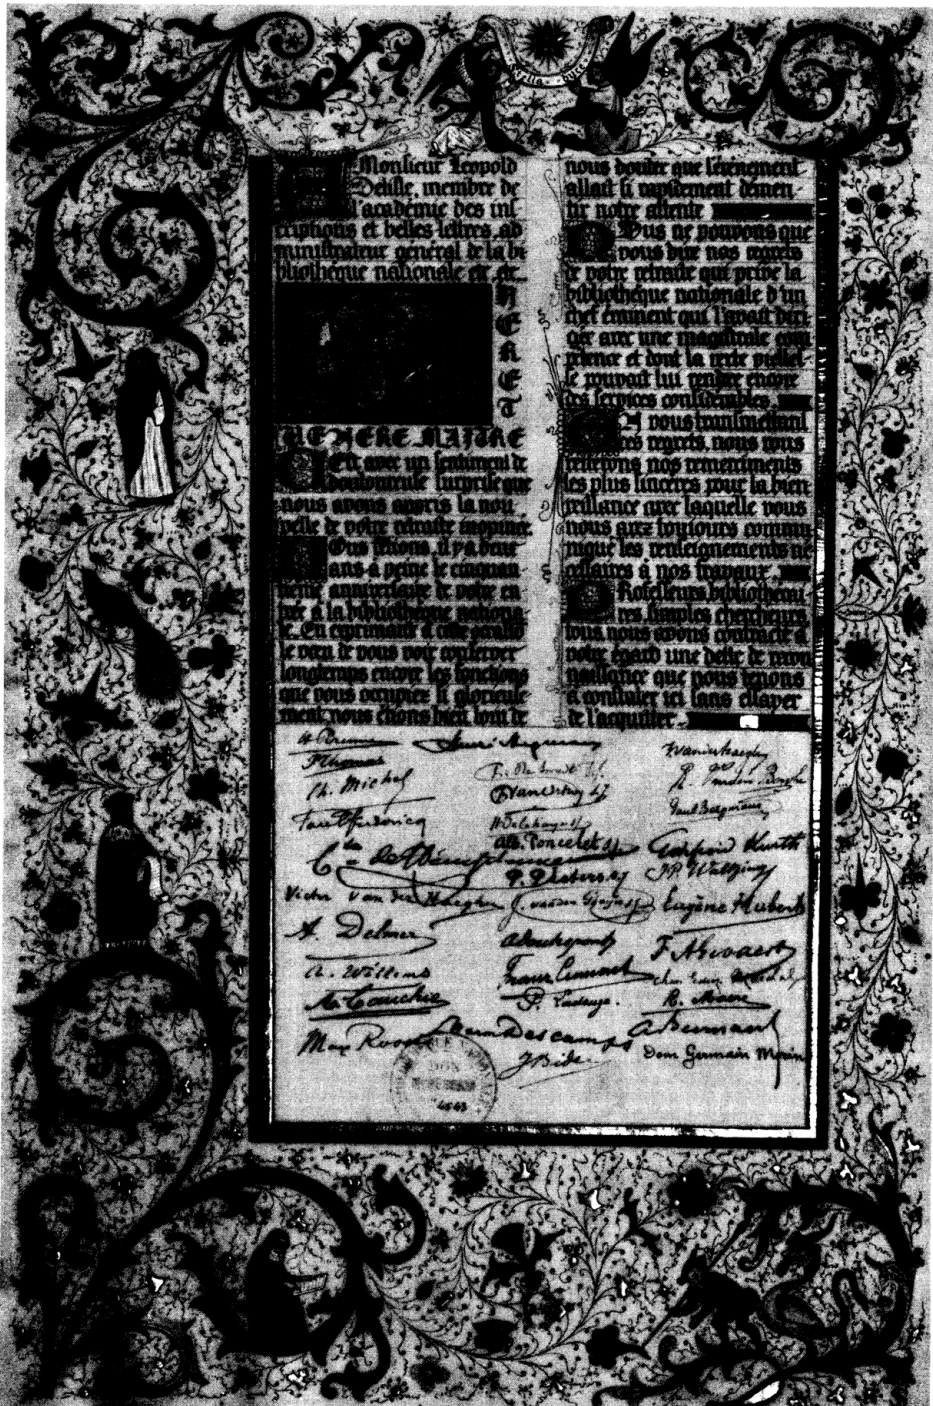 A Monsieur Leopold
Delisle, membre de
l'academie des ins
criptions et belles lettres, ad
ministrateur general de la bi
bliothèque nationale etc. etc.
CHER ET
VENERE MAITRE
C'Est avec un sentiment de
douloureuse surprise que
nous avons appris la nou
velle de votre retraite inopinee.
Nous fêtions, il y a deux
ans à peine le cinquan
tième anniversaire de votre en
trée à la bibliothèque nationa
le. En exprimant à cette occasio
le vœu de vous voir conserver
longtemps encore les fonctions
que vous occupiez si glorieuse
ment, nous étions bien loin de
nous douter que l'événement
allait si rapidement démen
tir notre attente
Nous ne pouvons que
vous dire nos regrets
de votre retraite qui prive la
bibliothèque nationale d'un
chef éminent qui l'avait diri
gée avec une magistrale com
pétence et dont la verte vieilles
se pouvait lui rendre encore
des services considérables.
En vous transmettant
ces regrets, nous vous
réiterons nos remerciments
les plus sincères pour la bien
veillance avec laquelle vous
nous avez toujours commu
niqué les renseignements né
cessaires à nos travaux.
Professeurs, bibliothecai
res, simples chercheurs,
tous nous avons contracté à
votre égard une dette de recon
naissance que nous tenons
à constater ici sans essayer
de l'acquitter.
H. Pirenne
P Thomas
Ch. Michel
Paul Fredericq
Victor Van der Haeghen
A. Delmer
A. Willems
A. Cauchie
Max Rooses
Alb. Poncelet
J. van den Gheyn
Franz Cumont
P. Ladeuze.
Descamps
J Bidez
Paul Bergmans
Godefroid Kurth
JP Waltzing
Eugène Hubert
DON
4643
Dom Germain Morin